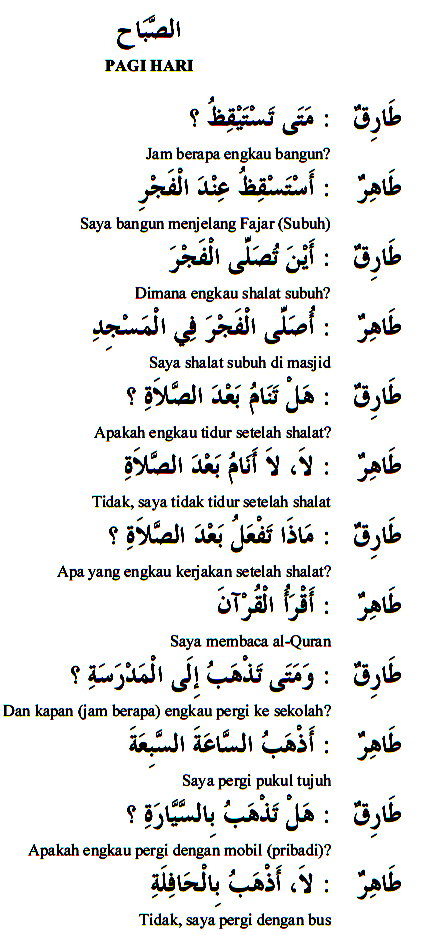 الصَّبَاح
PAGI HARI
طَارِقٌ : مَتَى تَسْتَيْقِظُ ؟
Jam berapa engkau bangun?
طَاهِرٌ : أَسْتَسْقِظُ عِنْدَ الْفَجْرِ
Saya bangun menjelang Fajar (Subuh)
طَارِقٌ : أَيْنَ تُصَلِّى الْفَجْرَ
Dimana engkau shalat subuh?
طَاهِرٌ : أُصَلِّى الْفَجْرَ فِي الْمَسْجِدِ
Saya shalat subuh di masjid
طَارِقٌ : هَلْ تَنَامُ بَعْدَ الصَّلاَةِ ؟
Apakah engkau tidur setelah shalat?
طَاهِرٌ : لاَ، لاَ أَنَامُ بَعْدَ الصَّلاَةِ
Tidak, saya tidak tidur setelah shalat
طَارِقٌ : مَاذَا تَفْعَلُ بَعْدَ الصَّلاَةِ ؟
Apa yang engkau kerjakan setelah shalat?
طَاهِرٌ : أَقْرَأُ الْقُرْآنَ
Saya membaca al-Quran
طَارِقٌ : وَمَتَى تَذْهَبُ إِلَى الْمَدْرَسَةِ ؟
Dan kapan (jam berapa) engkau pergi ke sekolah?
طَاهِرٌ : أَذْهَبُ السَّاعَةَ السَّبِعَةَ
Saya pergi pukul tujuh
طَارِقٌ : هَلْ تَذْهَبُ بِالسَّيَّارَةِ ؟
Apakah engkau pergi dengan mobil (pribadi)?
طَاهِرٌ : لاَ، أَذْهَبُ بِالْحَافِلَةِ
Tidak, saya pergi dengan bus